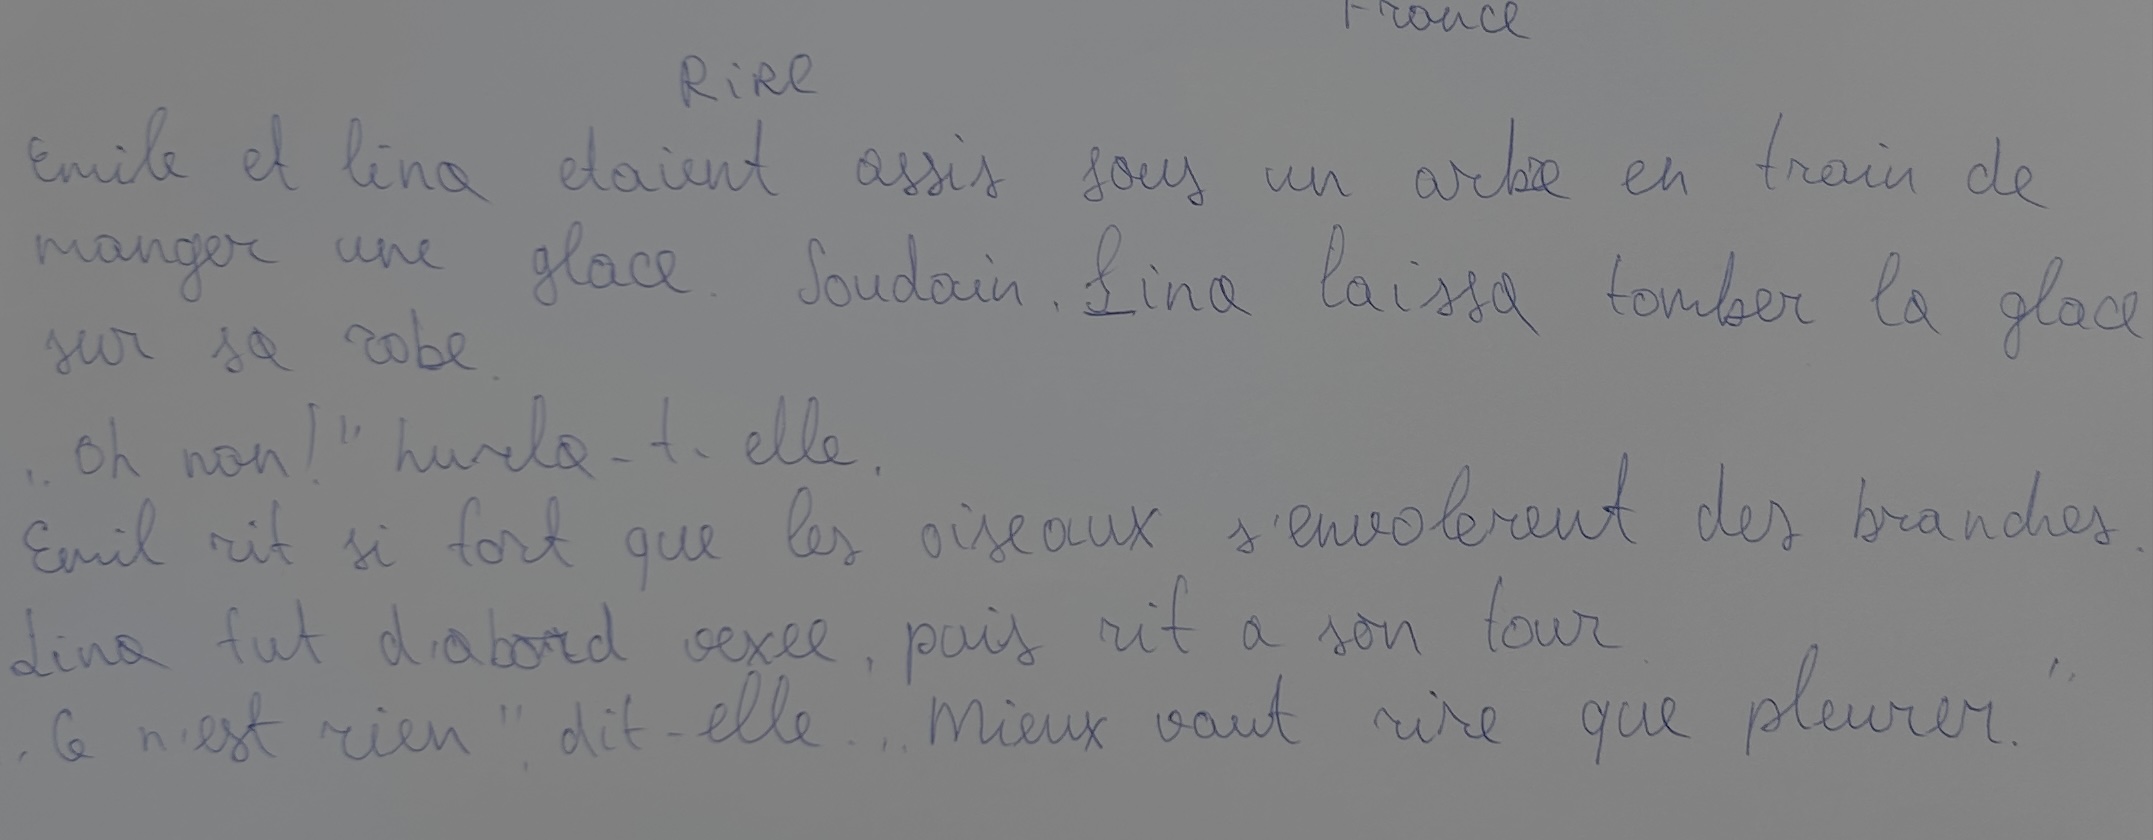 France
Rire
Emile et lina etaient assis sous un arbre en train de
manger une glace. Soudain, Lina laissa tomber la glace
sur sa robe.
„Oh non!" hurla-t-elle.
Emil rit si fort que les oiseaux s'envolerent des branches.
Lina fut d'abord vexee, puis rit a son tour.
„Ce n'est rien", dit-elle. „Mieux vaut rire que pleurer."